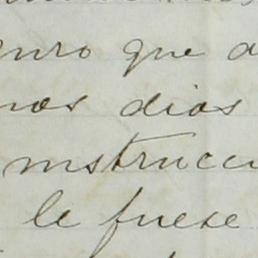 uro que a
nos dias
instrucci
le fuese